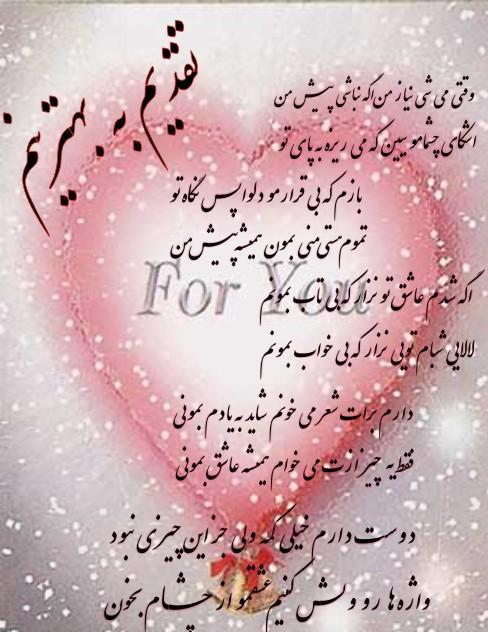 تقدیم به بهترینم
وقتی می شی نیاز من اگه نباشی پیش من
اشکای چشمامو ببین که می ریزه به پای تو
بازم که بی قرارمو دلواپس نگاه تو
تموم هستی منی بمون همیشه پیش من
For You
اگه شدم عاشق تو نزار که بی تاب بمونم
لالایی شبام تویی نزار که بی خواب بمونم
دارم برات شعر می خونم شاید به یادم بمونی
فقط یه چیز ازت می خوام همیشه عاشق بمونی
دوست دارم خیلی کمه ولی جز این چیزی نبود
واژه ها رو ولش کنیم عشقمو از چشام بخون